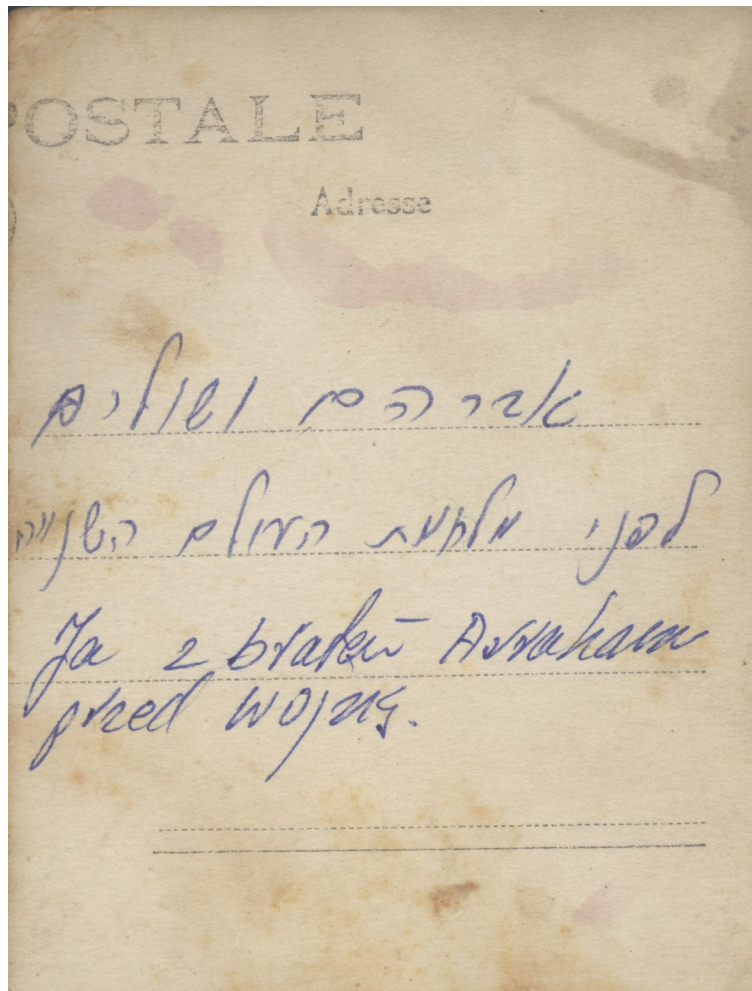 POSTALE
Adresse
אברהם ושולים
לפני מלחמת העולם השנייה
Ja z bratem Avraham
przed wojną.